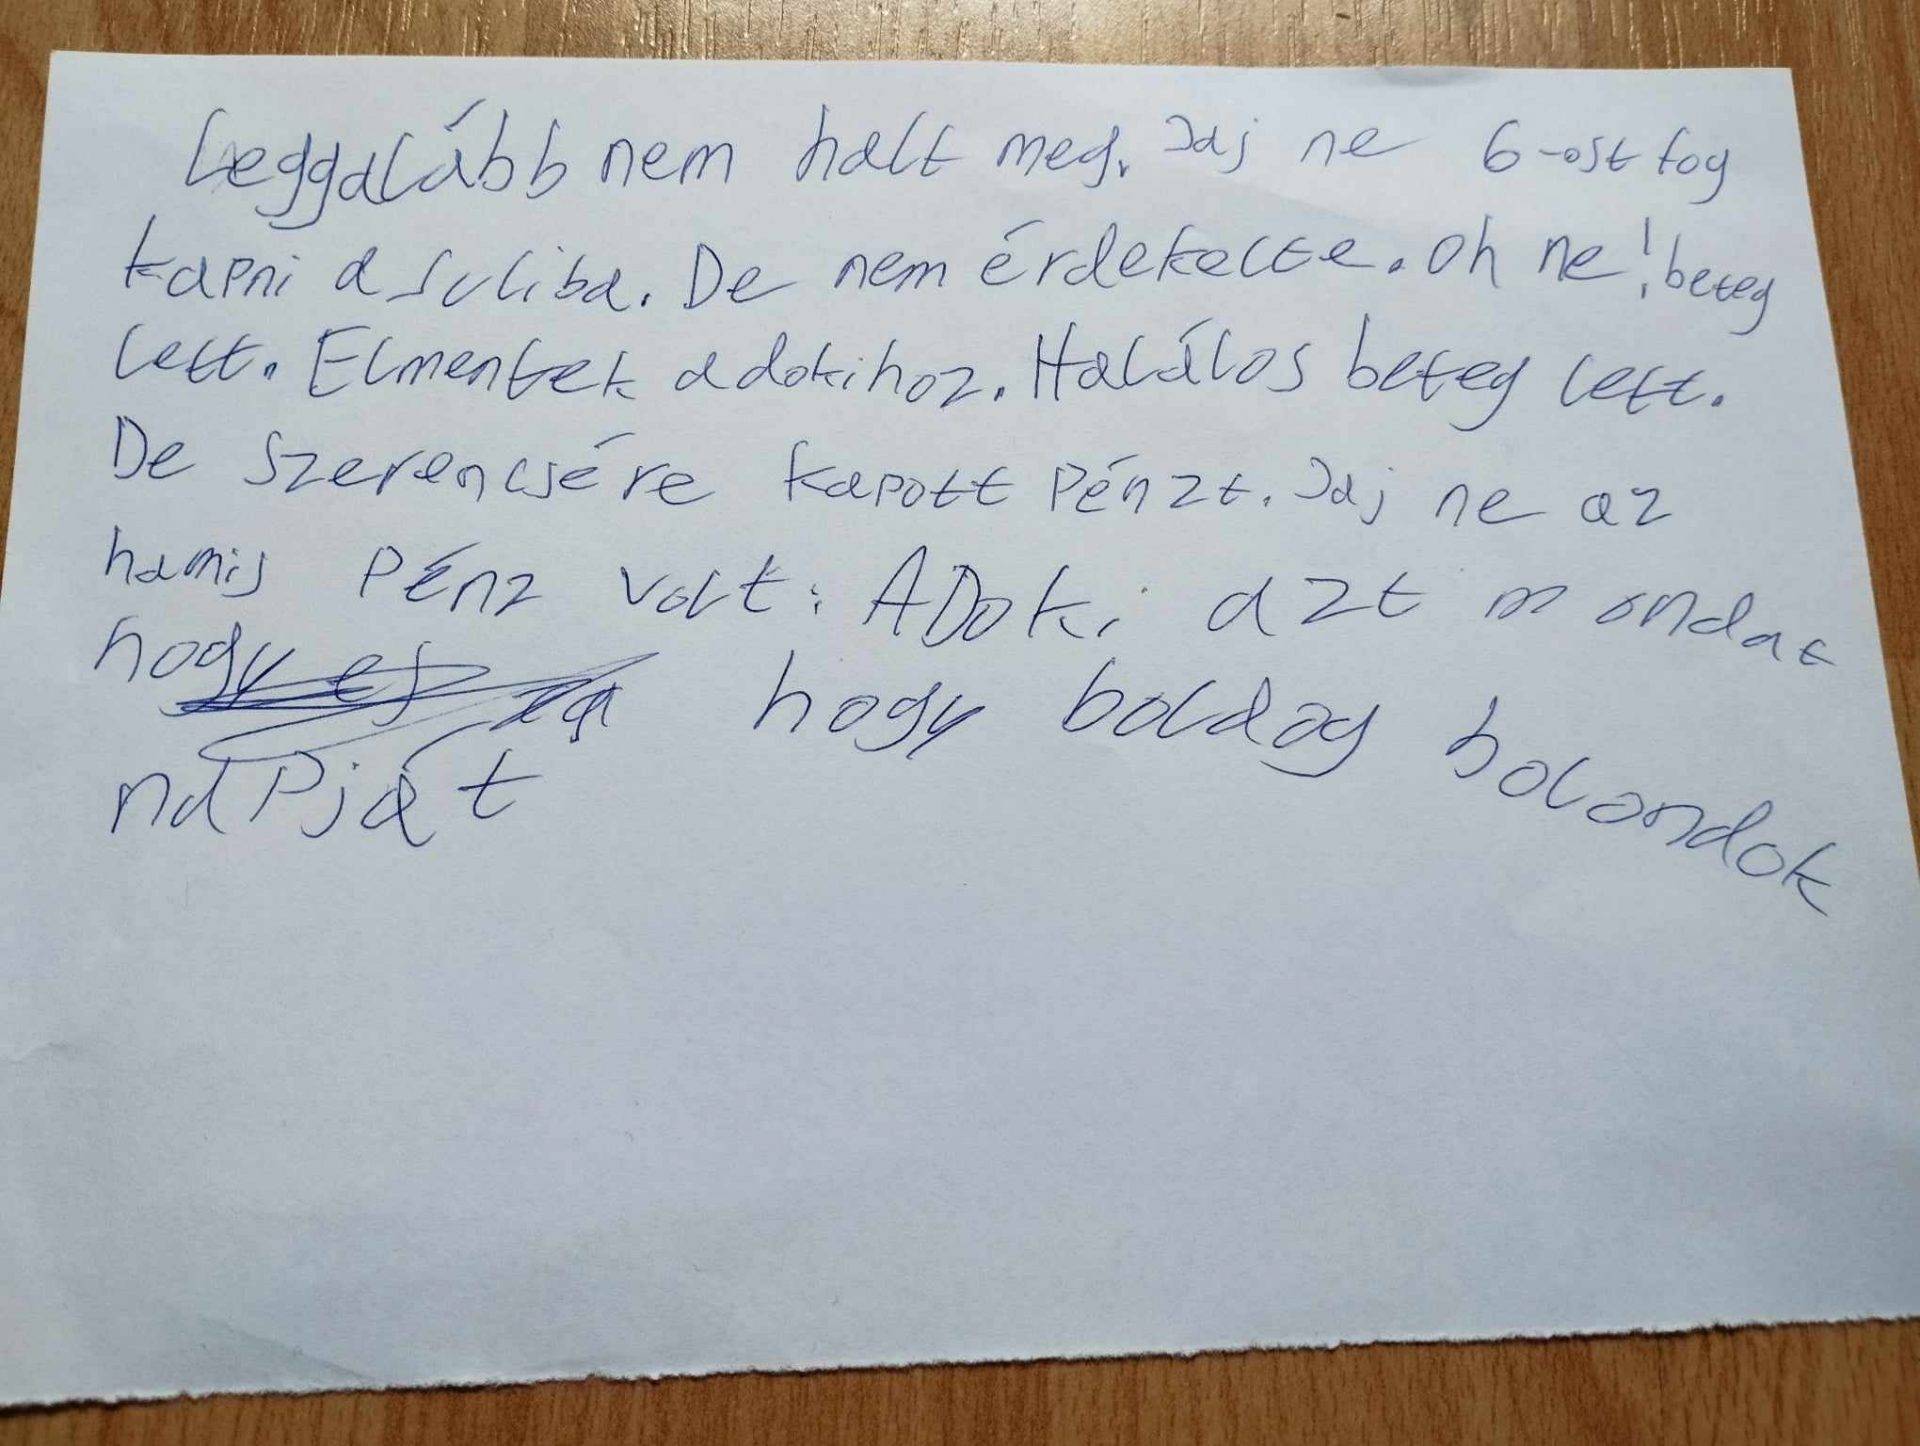 Leggalább nem halt meg. Jaj ne 6-ost fog
kapni a suliba. De nem érdekelte. Oh ne! beteg
lett. Elmentek a dokihoz. Halálos beteg lett.
De szerencsére kapott pénzt. Jaj ne az
hamis Pénz volt. A Doki azt mondat
hogy hogy boldog bolondok
naPját